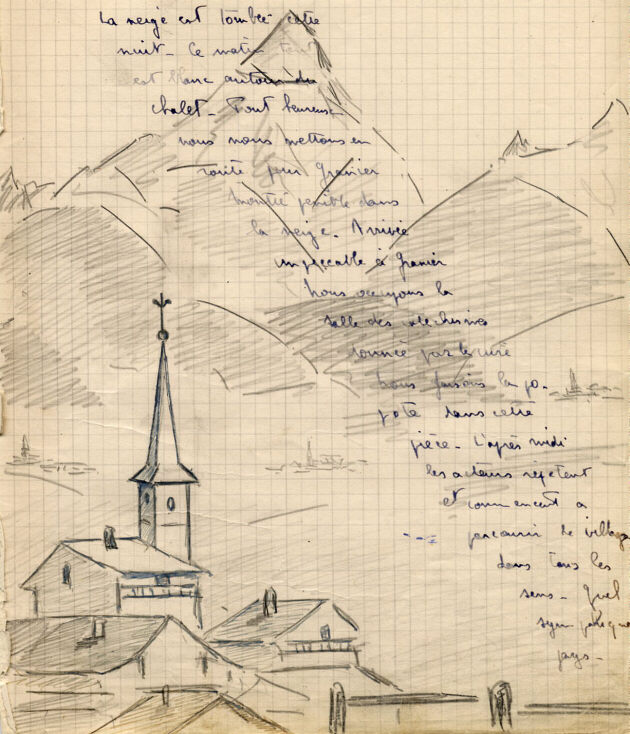 La neige est tombée cette
nuit - Ce matin tout
est blanc autour du
chalet - Tout heureux
nous nous mettons en
route pour Granier
montée pénible dans
la neige. Arrivée
impeccable à Granier
Nous occupons la
salle des catéchismes
donnée par le curé
nous faisons la po-
pote dans cette
pièce - L'après midi
les acteurs répètent
et commencent a
parcourir le village
dans tous les
sens - Quel
sympatique
pays -